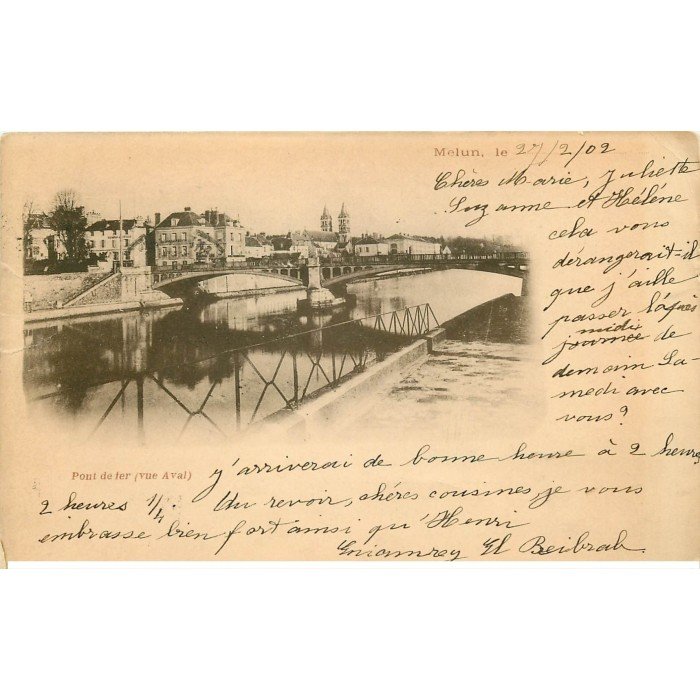 Melun, le 27/2/02
Chères Marie, Juliette
Suzanne et Hélène
cela vous
dérangerait-il
que j'aille
passer l'après
midi
journée de
demain Sa-
medi avec
vous?
Pont de fer (vue Aval)
j'arriverai de bonne heure à 2 heures
2 heures 1/4. Au revoir, chères cousines, je vous
embrasse bien fort ainsi qu'Henri